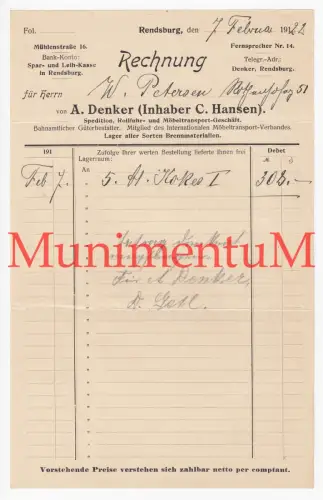 Fol.
Rendsburg, den 7 Februar 1922.
Mühlenstraße 16.
Bank-Konto:
Spar- und Leih-Kasse
in Rendsburg.
Rechnung
Fernsprecher Nr. 14.
Telegr.-Adr.:
Denker, Rendsburg.
für Herrn W. Petersen 51
von A. Denker (Inhaber C. Hansen).
Spedition, Rollfuhr- und Möbeltransport-Geschäft.
Bahnamtlicher Güterbestätter. Mitglied des Internationalen Möbeltransport-Verbandes.
Lager aller Sorten Brennmaterialien.
191
Zufolge Ihrer werten Bestellung lieferte Ihnen frei Lagerraum:
Debet
Feb 7. An 5. Kokes I 303.–
MunimentuM
Für A Denker,
Vorstehende Preise verstehen sich zahlbar netto per comptant.